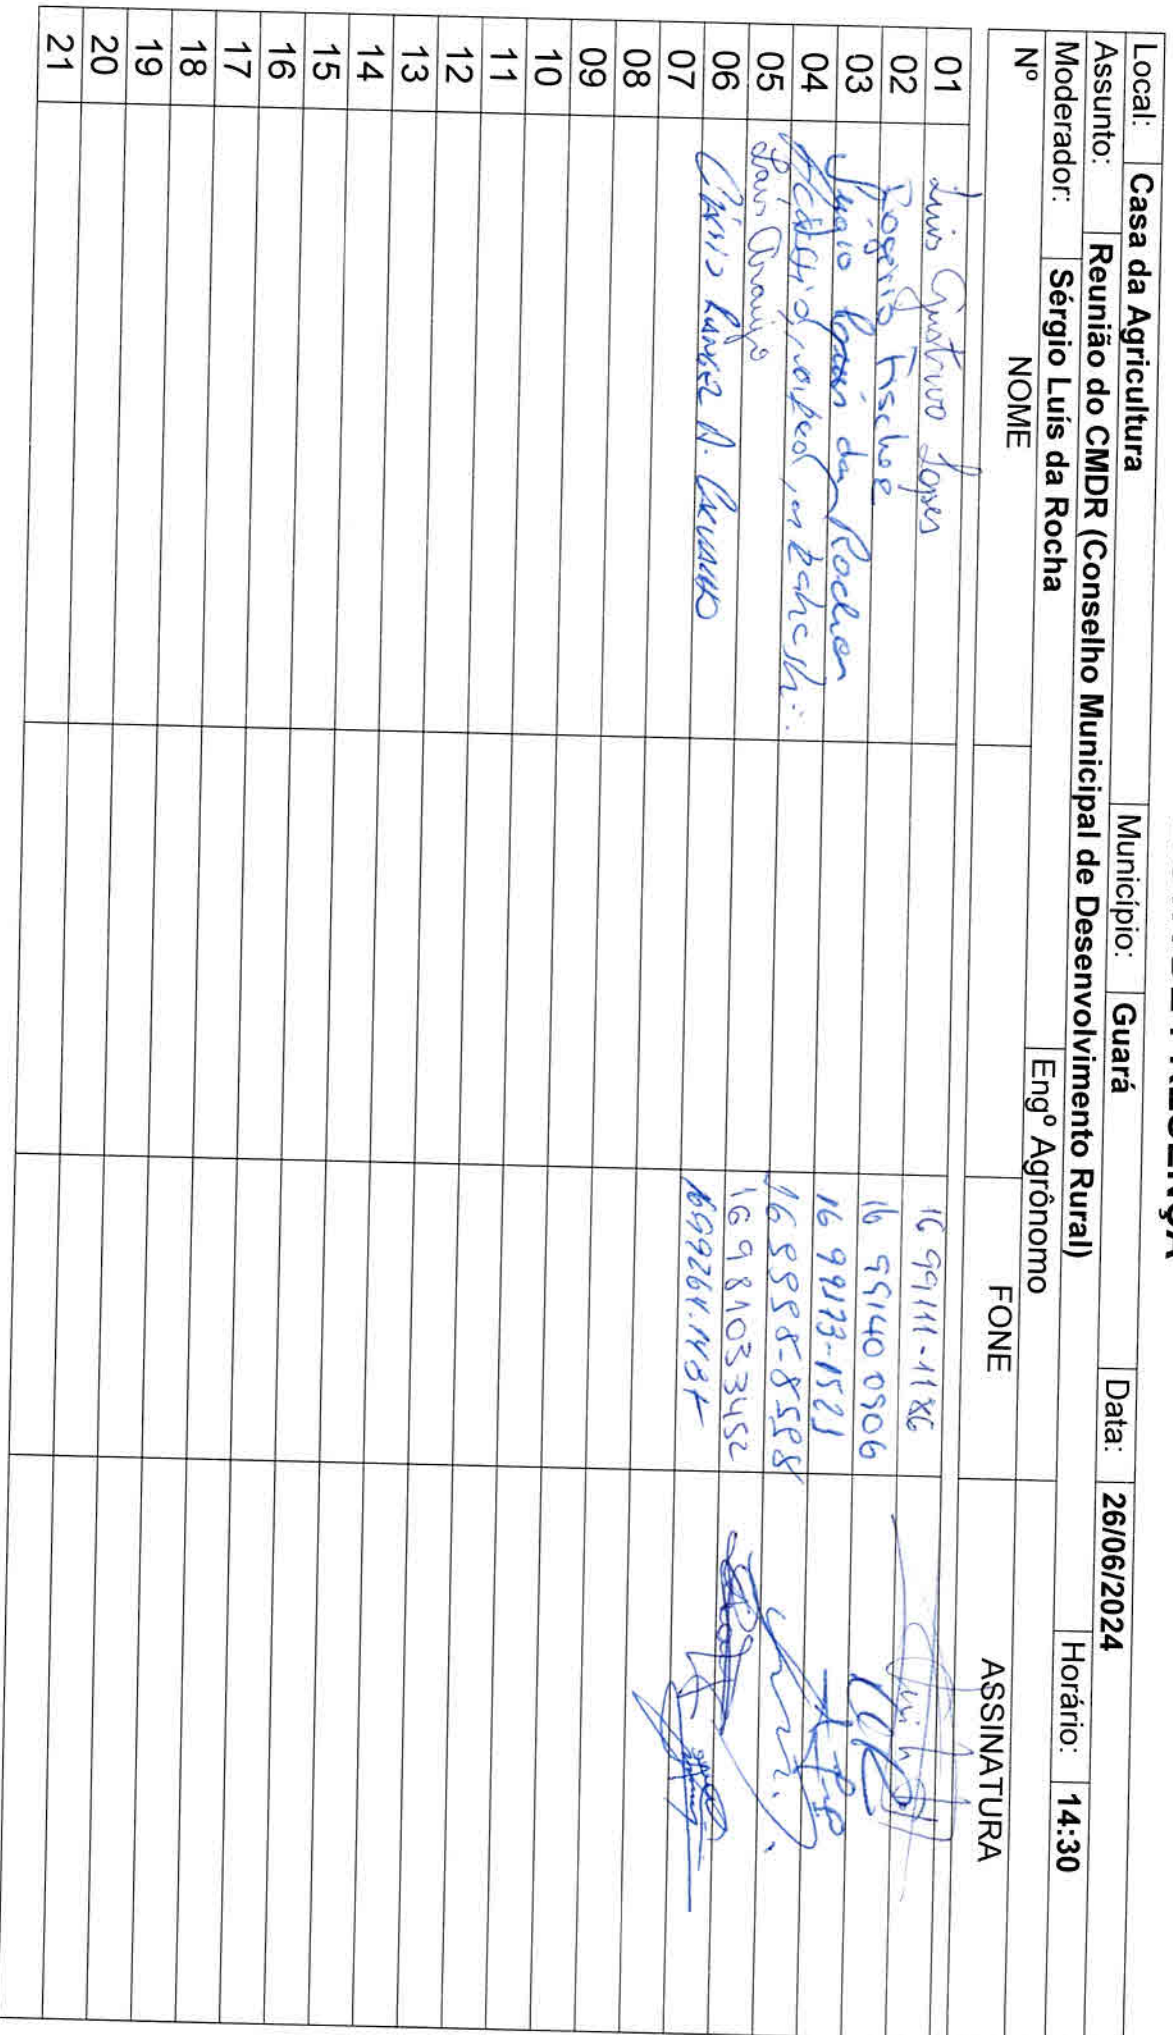 PRESENÇA
Local: Casa da Agricultura Município: Guará Data: 26/06/2024
Assunto: Reunião do CMDR (Conselho Municipal de Desenvolvimento Rural) Horário: 14:30
Moderador: Sérgio Luís da Rocha Engº Agrônomo
Nº NOME FONE ASSINATURA
01 Luis Gustavo Lopes 16 99111-1186
02 Rogério Fischer 16 991400906
03 Sergio Luis da Rocha 16 99173-1521
04 16 99998-8598
05 Lais Araujo 16981033452
06 Cássio Rangel A. Carvalho
07
08
09
10
11
12
13
14
15
16
17
18
19
20
21